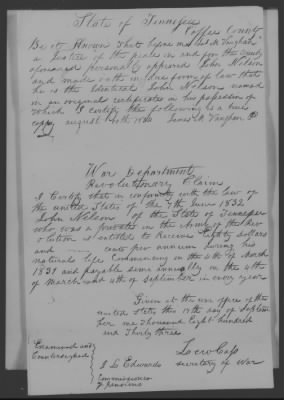 State of Tennessee
Coffee County
Be it Known that before me James M Vaughan
a Justice of the peace in and for the County
aforesaid personally appeared John Nelson
and made oath in due form of law that
he is the Identical John Nelson named
in an original certificate in his possession of
Which I certify the following is a true
copy august 1838 James M Vaughan JP
War Department
Revolutionary Claim
I Certify that in conformity with the law of
the united States of the 7th June 1832
John Nelson of the State of Tennessee
who was a private in the Army of the Rev
olution is entitled to Receive Eighty dollars
and cents per annum during his
natural life Commencing on the 4th of March
1831 and payable semi annually on the 4th
of march and 4th of september in every year
Given at the war office of the
united States this 17th day of Septem
ber one Thousand Eight hundred
and Thirty three
Examined and
Countersigned
Lewis Cass
J L Edwards secretary of War
Commissioner
of pensions